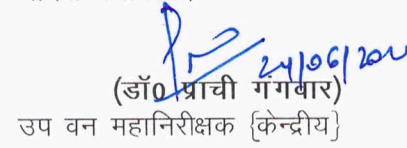 24/06/202
(डॉ0 प्राची गंगवार)
उप वन महानिरीक्षक {केन्द्रीय}